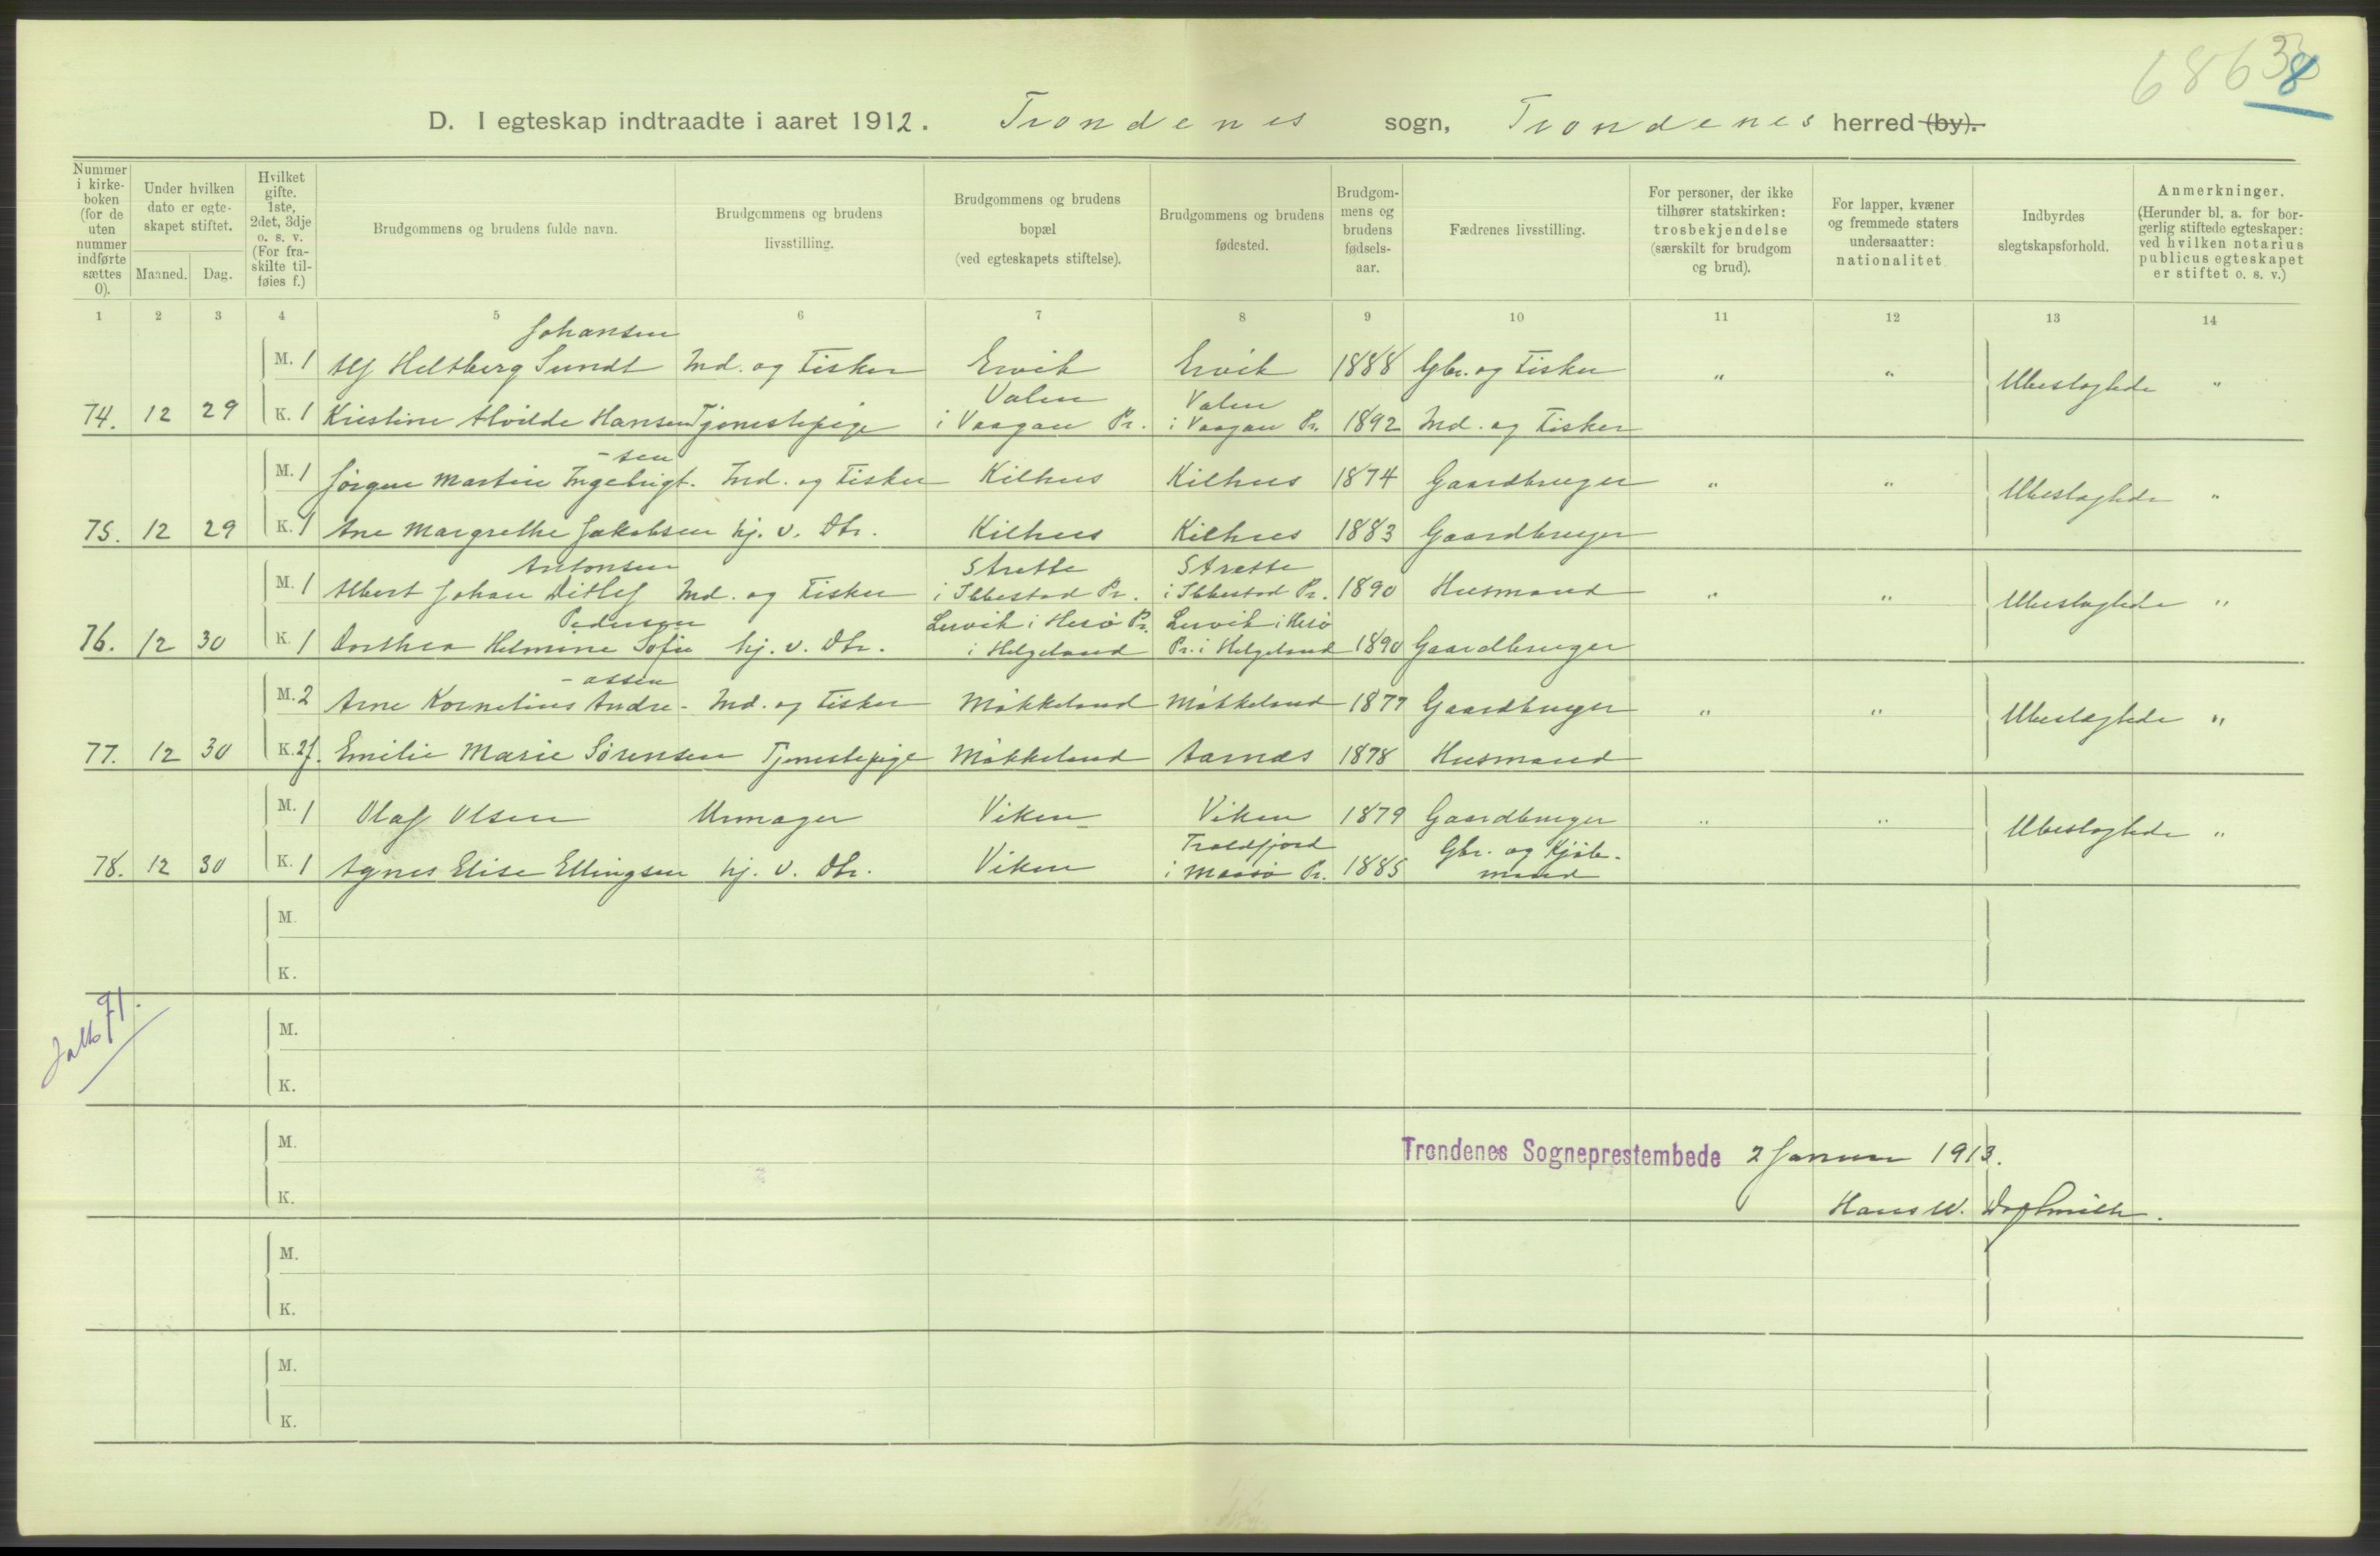 68638
D. I egteskap indtraadte i aaret 1912. Trondenes sogn, Trondenes herred (by).
Nummer i kirkeboken (for de uten nummer indførte sættes 0).
Under hvilken dato er egteskapet stiftet.
Maaned. Dag.
Hvilket gifte. 1ste, 2det, 3dje o. s. v. (For fraskilte tilføies f.)
Brudgommens og brudens fulde navn.
Brudgommens og brudens livsstilling.
Brudgommens og brudens bopæl (ved egteskapets stiftelse).
Brudgommens og brudens fødested.
Brudgommens og brudens fødselsaar.
Fædrenes livsstilling.
For personer, der ikke tilhører statskirken: trosbekjendelse (særskilt for brudgom og brud).
For lapper, kvæner og fremmede staters undersaatter: nationalitet
Indbyrdes slegtskapsforhold.
Anmerkninger. (Herunder bl. a. for borgerlig stiftede egteskaper: ved hvilken notarius publicus egteskapet er stiftet o. s. v.)
1 2 3 4 5 6 7 8 9 10 11 12 13 14
Johansen
M. 1 Alf Heltberg Sundt Ind. og Fisker Ervik Ervik 1888 Gbr. og Fisker " " Ubeslægtede "
Valen Valen
74. 12 29 K. 1 Kristine Alvilde Hansen Tjenestepige i Vaagan Pr. i Vaagan Pr. 1892 Ind. og Fisker
-sen
M. 1 Jörgen Martin Ingebrigt- Ind. og Fisker Kilhus Kilhus 1874 Gaardbruger " " Ubeslægtede "
75. 12 29 K. 1 Ane Margrethe Jakobsen hj. v. Dtr. Kilhus Kilhus 1883 Gaardbruger
Antonsen Strætte Strætte
M. 1 Albert Johan Ditlef Ind. og Fisker i Ibbestad Pr. i Ibbestad Pr. 1890 Husmand " " Ubeslægtede "
Pedersen Lervik i Herö Pr. Lervik i Herö
76. 12 30 K. 1 Dorthea Helmine Sofie hj. v. Dtr. i Helgeland Pr. i Helgeland 1890 Gaardbruger
-assen
M. 2 Arne Kornelius Andre- Ind. og Fisker Mökkeland Mökkeland 1877 Gaardbruger " " Ubeslægtede "
77. 12 30 K. 2f. Emilie Marie Sörensen Tjenestepige Mökkeland Aarnæs 1878 Husmand
M. 1 Olaf Olsen Urmager Viken Viken 1879 Gaardbruger " " Ubeslægtede "
Troldfjord Gbr. og Kjöb-
78. 12 30 K. 1 Agnes Elise Ellingsen hj. v. Dtr. Viken i Maasö Pr. 1885 mand
M.
K.
M.
K.
M.
K.
M.
K.
M.
K.
Trondenes Sogneprestembede 2 Januar 1913.
Hans W.